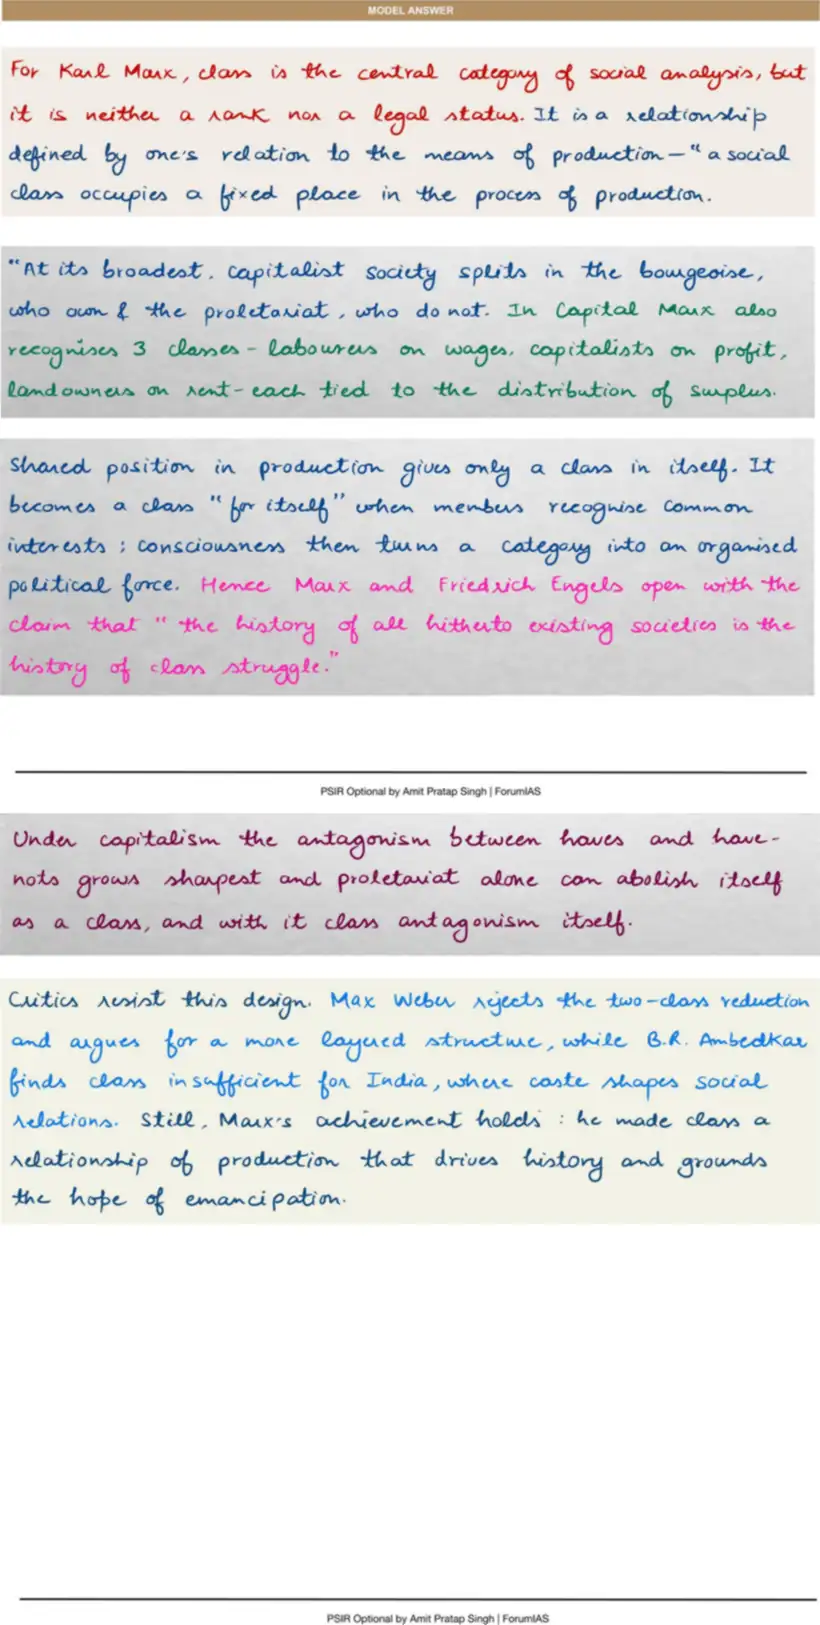 MODEL ANSWER
For Karl Marx, class is the central category of social analysis, but
it is neither a rank nor a legal status. It is a relationship
defined by one's relation to the means of production – "a social
class occupies a fixed place in the process of production.
"At its broadest, capitalist society splits in the bourgeoise,
who own & the proletariat, who do not. In Capital Marx also
recognises 3 classes – labourers on wages, capitalists on profit,
landowners on rent – each tied to the distribution of surplus.
Shared position in production gives only a class in itself. It
becomes a class "for itself" when members recognise common
interests ; consciousness then turns a category into an organised
political force. Hence Marx and Friedrich Engels open with the
claim that " the history of all hitherto existing societies is the
history of class struggle."
PSIR Optional by Amit Pratap Singh | ForumIAS
Under capitalism the antagonism between haves and have-
nots grows sharpest and proletariat alone can abolish itself
as a class, and with it class antagonism itself.
Critics resist this design. Max Weber rejects the two-class reduction
and argues for a more layered structure, while B.R. Ambedkar
finds class insufficient for India, where caste shapes social
relations. Still, Marx's achievement holds : he made class a
relationship of production that drives history and grounds
the hope of emancipation.
PSIR Optional by Amit Pratap Singh | ForumIAS